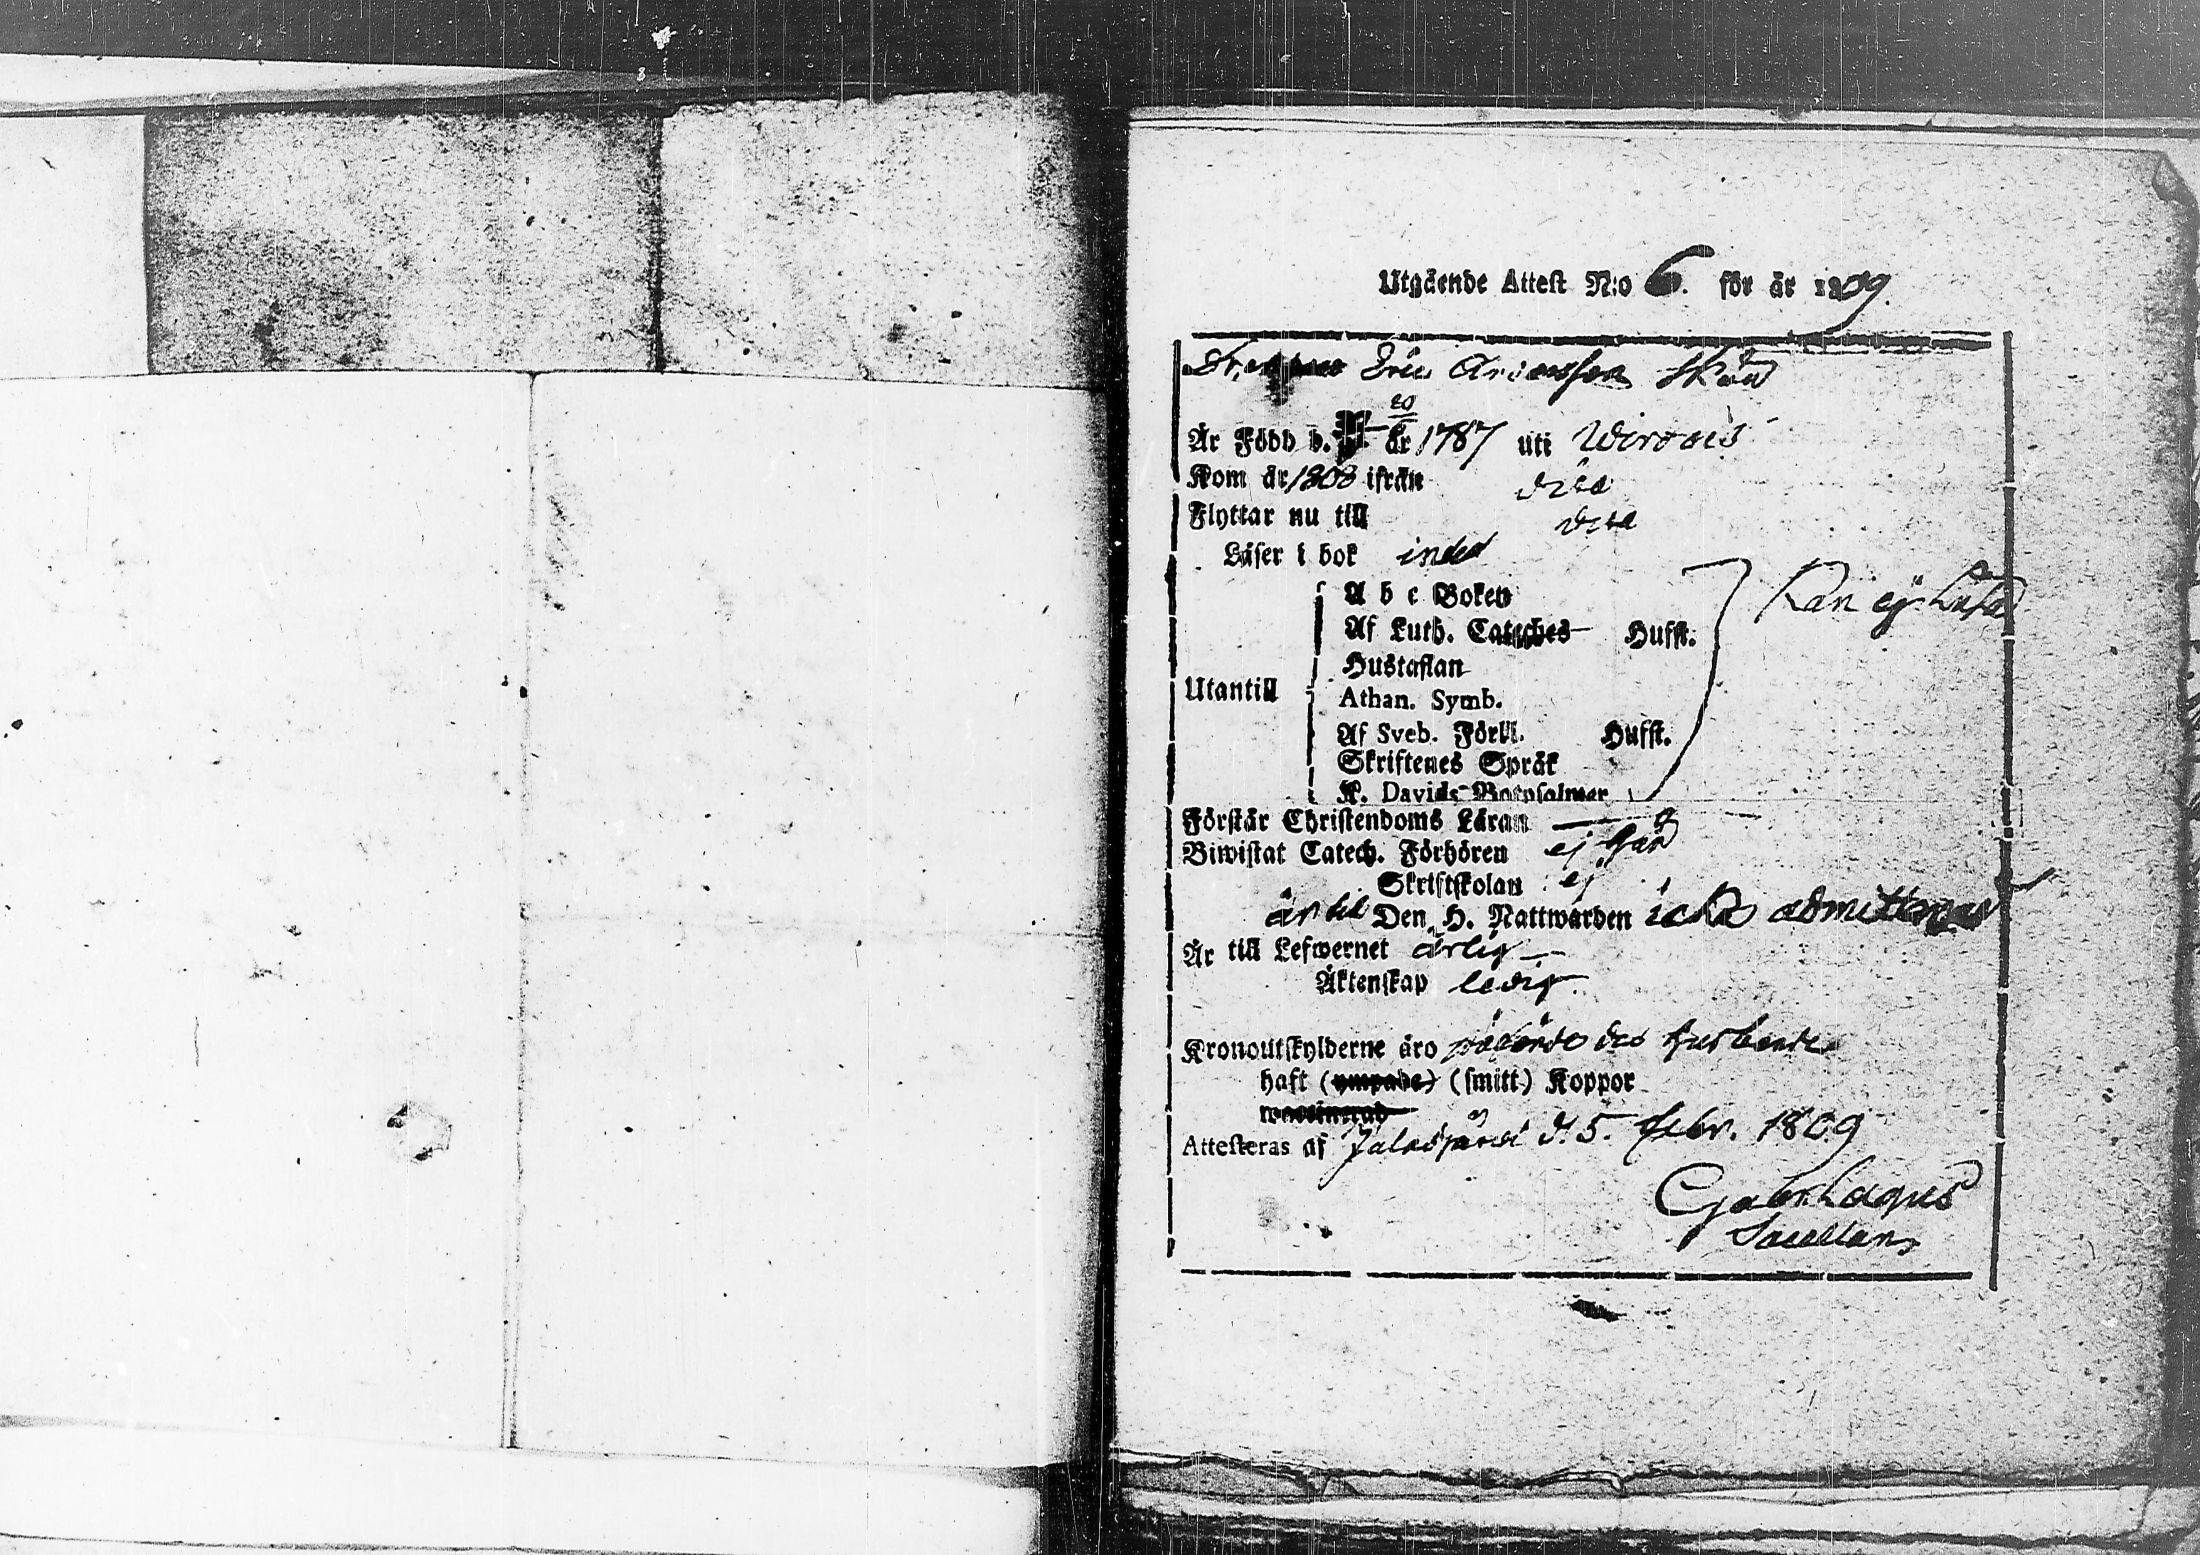 Utgående Attest N:o 6. för år 1809.
Eric Arvensson
20
Är Född d. år 1787 uti Wirdois
Kom år 1808 ifrån dito
Flyttar nu till dito
Läser i bok
A b c Boken
Kan ej läsa
Af Luth. Cateches Hufst.
Hustaflan
Utantill
Athan. Symb.
Af Sveb. Förkl. Hufst.
Skriftenes Språk
K. Davids Botpsalmer
Förstår Christendoms Läran
Biwistat Catech. Förhören ej
Skriftskolan ej
är til Den H. Nattwarden icke admitterad
Är till Lefwernet ärlig
Äktenskap ledig
Kronoutskylderne äro påförde des husbonde
haft (ympade) (smitt.) Koppor
waccinerad
Attesteras af Jalasjärvi d. 5. Febr. 1809
Gabr. Lagus
Sacellan